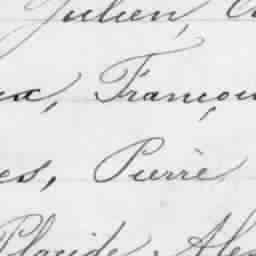 Julien,
Françou
es, Pierre
Placide, Alex